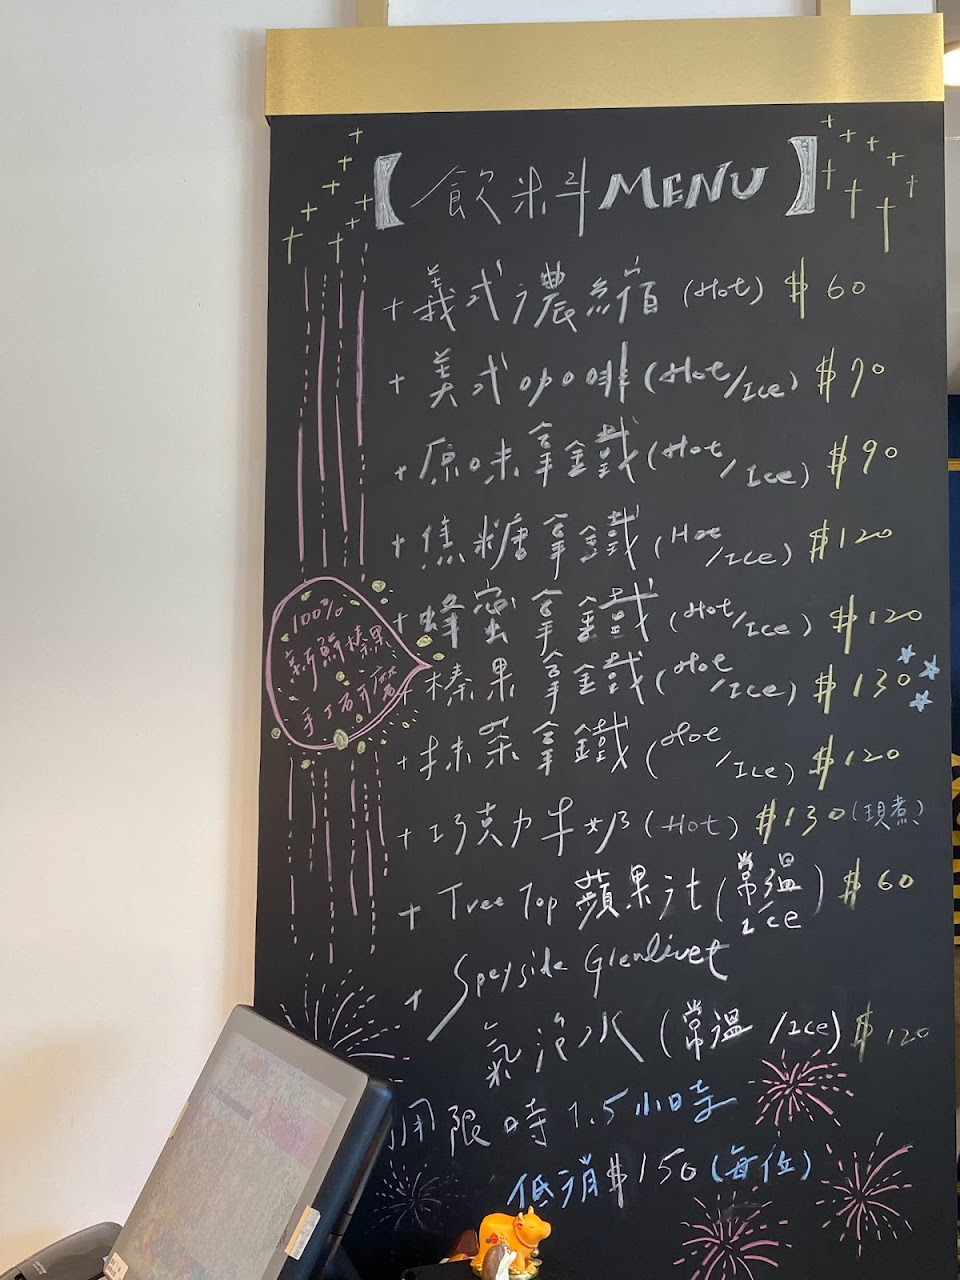 【飲料MENU】
+義式濃縮(Hot) $60
+美式咖啡(Hot/Ice) $70
+原味拿鐵(Hot/Ice) $90
+焦糖拿鐵(Hot/Ice) $120
+蜂蜜拿鐵(Hot/Ice) $120
100%
新鮮榛果
手工研磨
+榛果拿鐵(Hot/Ice) $130
+抹茶拿鐵(Hot/Ice) $120
+巧克力牛奶(Hot) $130(現煮)
+Tree Top 蘋果汁(常溫/Ice) $60
+Speyside Glenlivet
氣泡水(常溫/Ice) $120
用限時1.5小時
低消$150(每位)